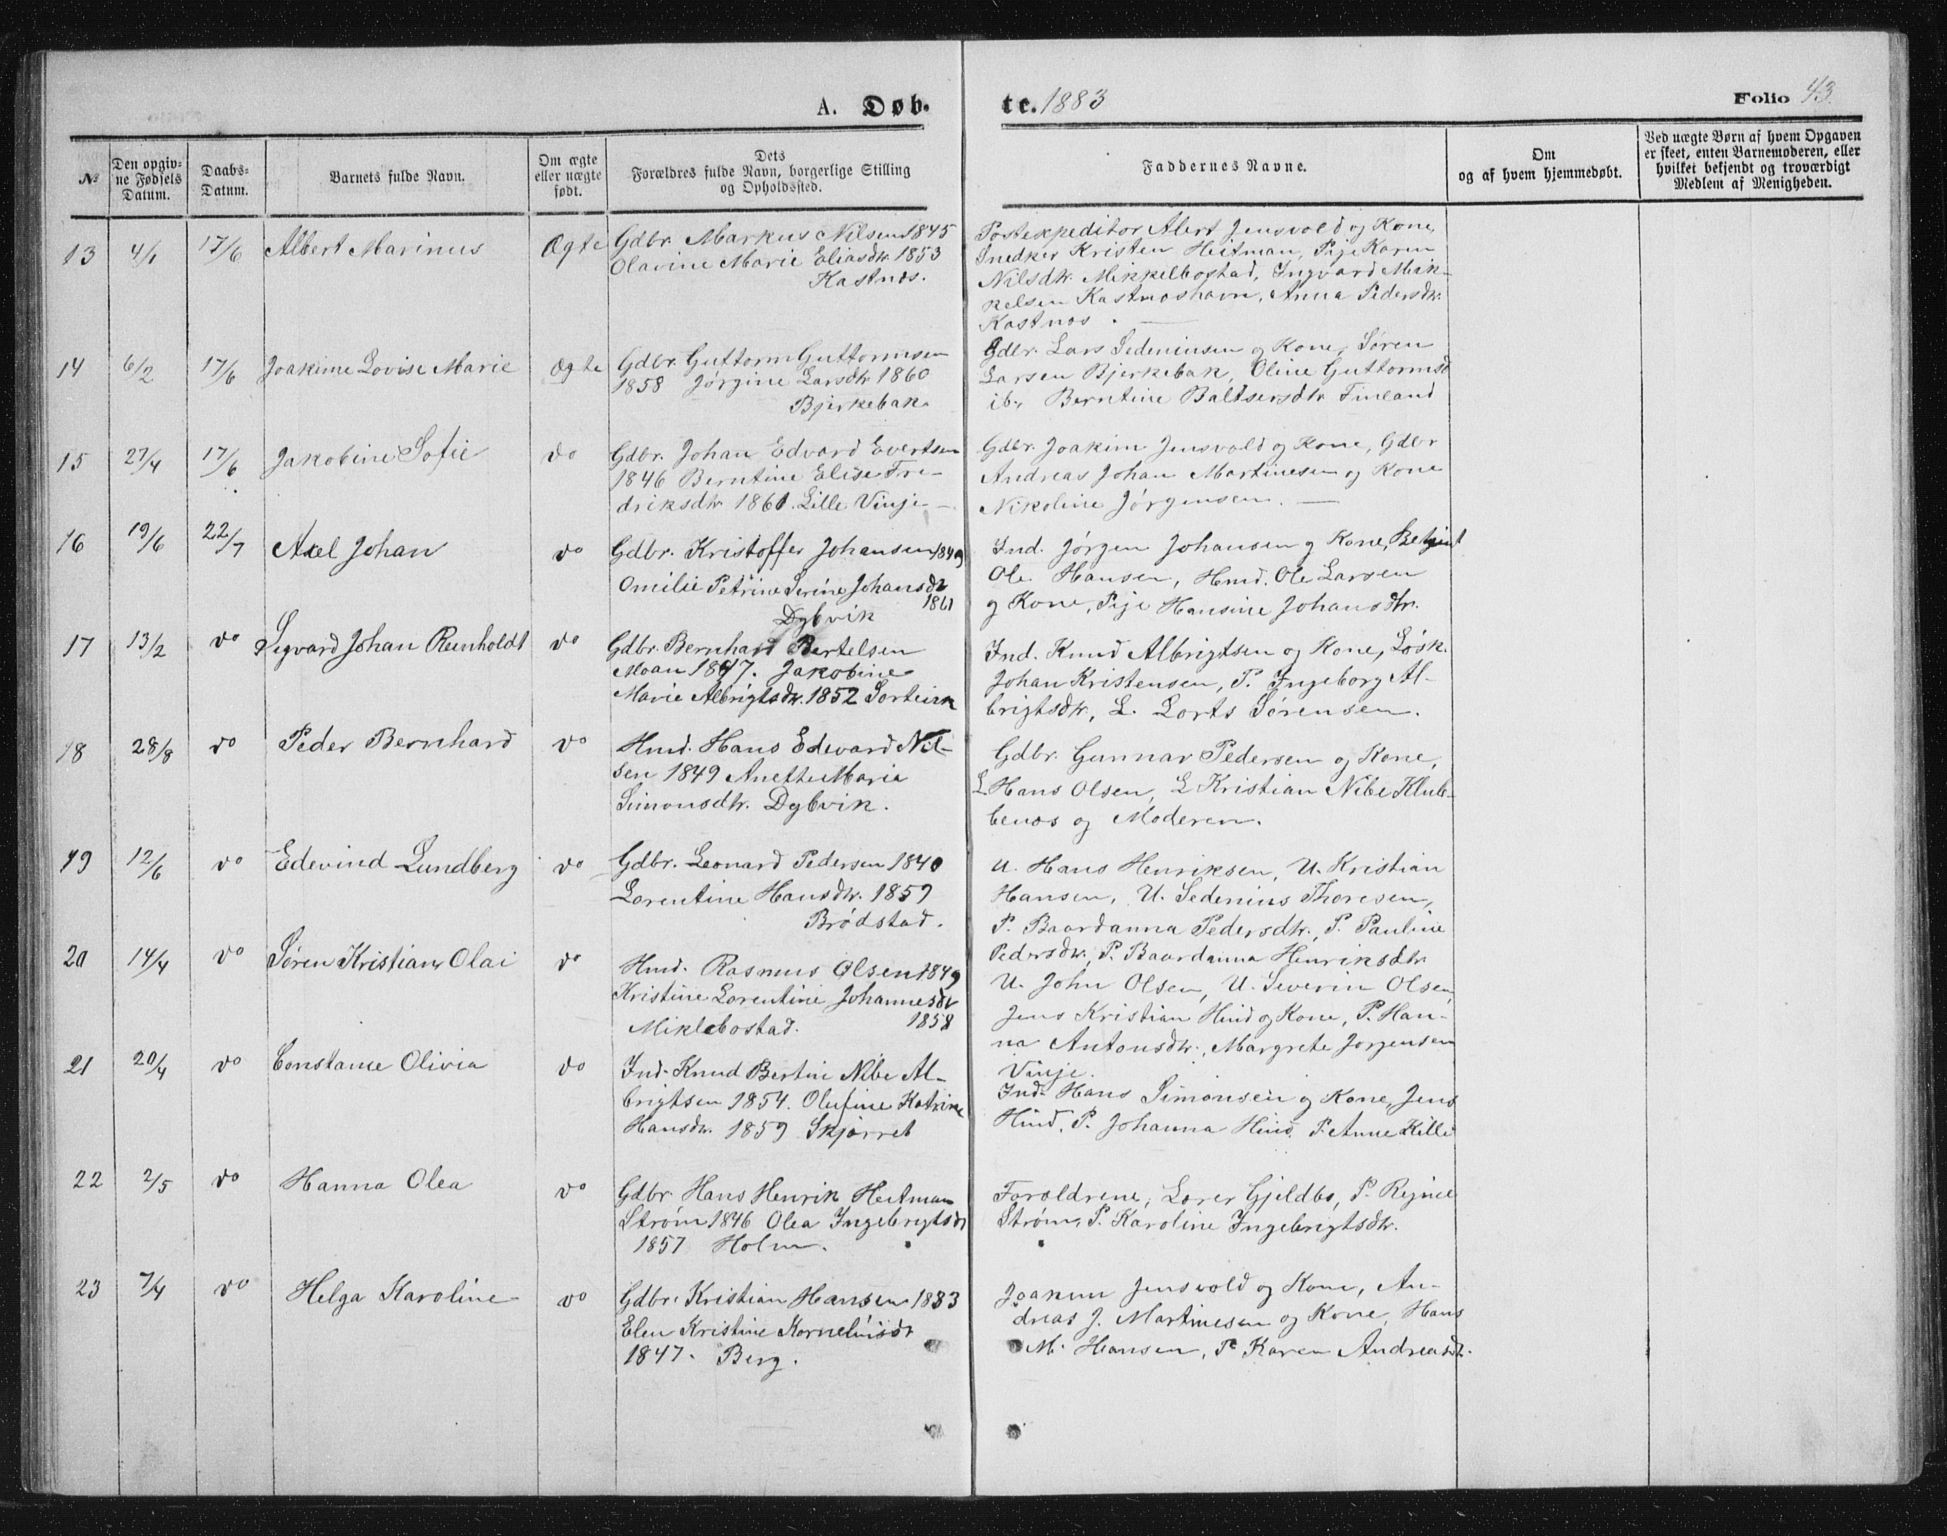 A. Døb-
te. 1883
Folio 43.
№
Den opgiv-
ne Fødsels
Datum.
Daabs-
Datum.
Barnets fulde Navn.
Om ægte
eller uægte
født.
Dets
Forældres fulde Navn, borgerlige Stilling
og Opholdssted.
Faddernes Navne.
Om
og af hvem hjemmedøbt.
Ved uægte Børn af hvem Opgaven
er skeet, enten Barnemoderen, eller
hvilket bekjendt og troværdigt
Medlem af Menigheden.
13 4/1 17/6 Albert Marinus Ægte
Gdbr. Markus Nilsen 1845
Olavine Marie Eliasdtr. 1853
Kastnæs.
Postexpeditør Alert Jensvold og Kone,
Snedker Kristen Heitman, Pige Karen
Nilsdtr. Mikkelbostad, Ingvard Mik-
kelsen Kastnæshavn, Anna Pedersdtr.
Kastnæs.
14 6/2 17/6 Joakime Lovise Marie Ægte
Gdbr. Guttorm Guttormsen
1858 Jørgine Larsdtr 1860
Bjerkebak.
Gdbr. Lars Sedeniusen og Kone, Søren
Larsen Bjerkebak, Oline Guttormsd
ib., Berntine Baltsersdtr Finland
15 27/4 17/6 Jakobine Sofie do
Gdbr. Johan Edvard Evertsen
1846 Berntine Elise Fre-
driksdtr 1861. Lille Vinje
Gdbr. Joakim Jensvold og Kone, Gdbr
Andreas Johan Martinesen og Kone
Nikoline Jørgensen.
16 19/6 22/7 Axel Johan do
Gdbr. Kristoffer Johansen 1849
Omilie Petrine Serine Johansdtr
1861
Dybvik
Ind. Jørgen Johansen og Kone, Betjent
Ole Hansen, Hmd. Ole Larsen
og Kone, Pige Hansine Johansdtr.
17 13/2 do Segvard Johan Reinholdt do
Gdbr. Bernhard Bertelsen
Moan 1847. Jakobine
Marie Albrigtsdtr. 1852
Ind. Knud Albrigtsen og Kone, Løsk.
Johan Kristensen, P. Ingeborg Al-
brigtsdtr, L. Lorts Sørensen.
18 28/8 do Peder Bernhard do
Hmd. Hans Edevard Nil-
sen 1849 Anette Maria
Simonsdtr. Dybvik.
Gdbr. Gunnar Pedersen og Kone,
L Hans Olsen, L Kristian Nibe Klub-
benæs og Moderen.
19 12/6 do Edevind Lundberg do
Gdbr. Leonard Pedersen 1840
Lorentine Hansdtr. 1859
Brødstad.
U. Hans Henriksen, U. Kristian
Hansen, U. Sedenius Thoresen,
P. Baardanna Pedersdtr., P. Pauline
Pedersdtr, P. Baardanna Henriksdtr
20 14/4 do Søren Kristian Olai do
Hmd. Rasmus Olsen 1849
Kristine Lorentine Johannesdtr
1858
Miklebostad.
U. John Olsen, U. Severin Olsen,
Jens Kristian Hind og Kone, P. Han-
na Antonsdtr., Margrete Jørgensen
Vinje.
21 20/4 do Constanse Olivia do
Ind. Knud Bertin Nibe Al-
brigtsen 1854. Olufine Katrine
Hansdtr. 1859 Skjørret
Ind. Hans Simonsen og Kone, Jens
Hind, P. Johanna Hind, P. Anne Kill
22 2/5 do Hanna Olea do
Gdbr. Hans Henrik Heitman
Strøm 1846 Olea Ingebrigtsdtr
1857 Holm.
Forældrene, Gjeldbo, P. Regine
Strøm, P. Karoline Ingebrigtsdtr.
23 7/4 do Helga Karoline do
Gdbr. Kristian Hansen 1833
Elen Kristine Korneliusdtr
1847. Berg.
Joakim Jensvold og Kone, An-
dreas J. Martinesen og Kone, Hans
M. Hansen, P. Karen Andreasdtr.